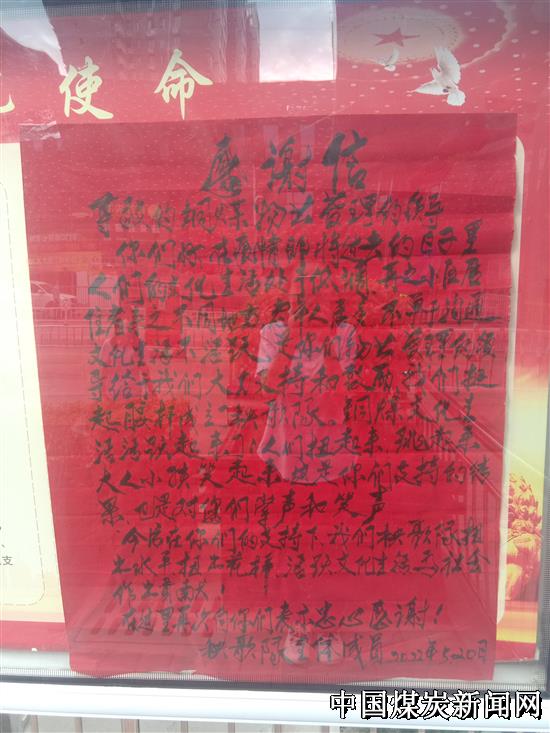 使命
感谢信
尊敬的铜煤物业管理的领导
你们好在疫情即将过去的日子里
人们的文化生活处于低潮，再之小区居
住着来之不同地方的人居多，不善于沟通
文化生活不活跃，是你们物业管理的领
导给于我们大力支持和帮助，我们挺
起腰杆成立了秧歌队。铜煤文化生
活活跃起来了人们扭起来，跳起来
大人小孩笑起来成为你们支持的结
果，也是对你们掌声和笑声
今后在你们的支持下我们秧歌队扭
出水平扭出花样，活跃文化生活为社会
作出贡献！
在这里再次向你们表示忠心感谢！
秧歌队全体成员 2022年5.20日
支
中国煤炭新闻网